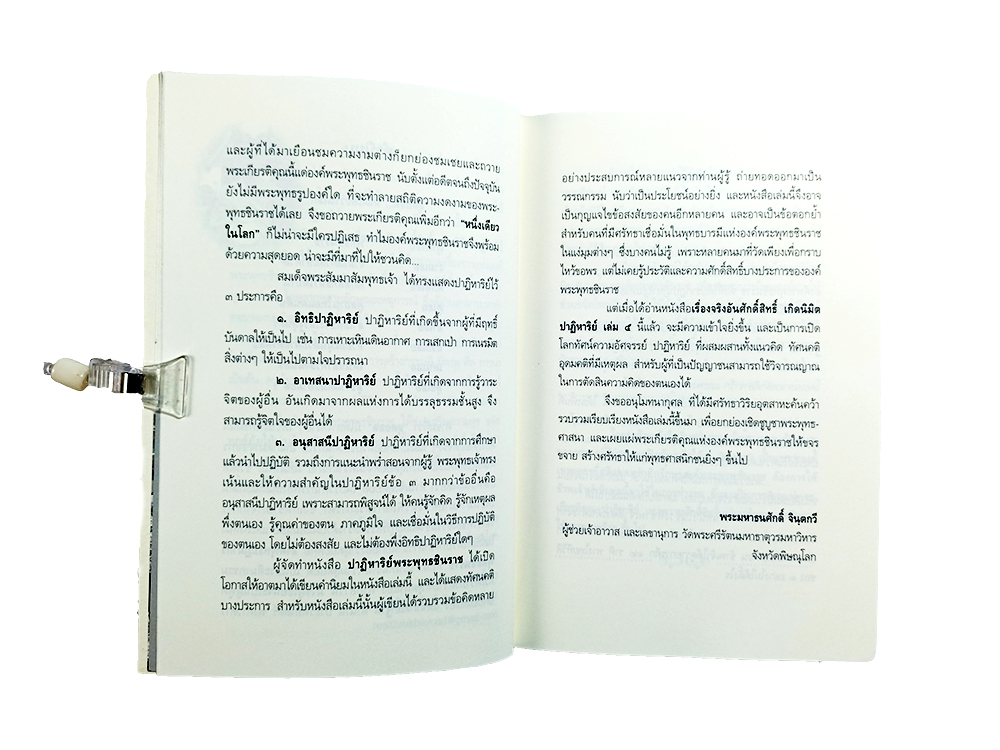 และผู้ที่ได้มาเยือนชมความงามต่างก็ยกย่องชมเชยและถวาย
พระเกียรติคุณนี้แด่องค์พระพุทธชินราช นับตั้งแต่อดีตจนถึงปัจจุบัน
ยังไม่มีพระพุทธรูปองค์ใด ที่จะทำลายสถิติความงดงามของพระ-
พุทธชินราชได้เลย จึงขอถวายพระเกียรติคุณเพิ่มอีกว่า "หนึ่งเดียว
ในโลก" ก็ไม่น่าจะมีใครปฏิเสธ ทำไมองค์พระพุทธชินราชจึงพร้อม
ด้วยความสุดยอด น่าจะมีที่มาที่ไปให้ชวนคิด...
สมเด็จพระสัมมาสัมพุทธเจ้า ได้ทรงแสดงปาฏิหาริย์ไว้
๓ ประการคือ
๑. อิทธิปาฏิหาริย์ ปาฏิหาริย์ที่เกิดขึ้นจากผู้ที่มีฤทธิ์
บันดาลให้เป็นไป เช่น การเหาะเหินเดินอากาศ การเสกเป่า การเนรมิต
สิ่งต่างๆ ให้เป็นไปตามใจปรารถนา
๒. อาเทสนาปาฏิหาริย์ ปาฏิหาริย์ที่เกิดจากการรู้วาระ
จิตของผู้อื่น อันเกิดมาจากผลแห่งการได้บรรลุธรรมชั้นสูง จึง
สามารถรู้จิตใจของผู้อื่นได้
๓. อนุสาสนีปาฏิหาริย์ ปาฏิหาริย์ที่เกิดจากการศึกษา
แล้วนำไปปฏิบัติ รวมถึงการแนะนำพร่ำสอนจากผู้รู้ พระพุทธเจ้าทรง
เน้นและให้ความสำคัญในปาฏิหาริย์ข้อ ๓ มากกว่าข้ออื่นคือ
อนุสาสนีปาฏิหาริย์ เพราะสามารถพิสูจน์ได้ ให้คนรู้จักคิด รู้จักเหตุผล
พึ่งตนเอง รู้คุณค่าของตน ภาคภูมิใจ และเชื่อมั่นในวิธีการปฏิบัติ
ของตนเอง โดยไม่ต้องสงสัย และไม่ต้องพึ่งอิทธิปาฏิหาริย์ใดๆ
ผู้จัดทำหนังสือ ปาฏิหาริย์พระพุทธชินราช ได้เปิด
โอกาสให้อาตมาได้เขียนคำนิยมในหนังสือเล่มนี้ และได้แสดงทัศนคติ
บางประการ สำหรับหนังสือเล่มนี้นั้นผู้เขียนได้รวบรวมข้อคิดหลาย
อย่างประสบการณ์หลายแนวจากท่านผู้รู้ ถ่ายทอดออกมาเป็น
วรรณกรรม นับว่าเป็นประโยชน์อย่างยิ่ง และหนังสือเล่มนี้จึงอาจ
เป็นกุญแจไขข้อสงสัยของคนอีกหลายคน และอาจเป็นข้อตอกย้ำ
สำหรับคนที่มีศรัทธาเชื่อมั่นในพุทธบารมีแห่งองค์พระพุทธชินราช
ในแง่มุมต่างๆ ซึ่งบางคนไม่รู้ เพราะหลายคนมาที่วัดเพียงเพื่อกราบ
ไหว้ขอพร แต่ไม่เคยรู้ประวัติและความศักดิ์สิทธิ์บางประการขององค์
พระพุทธชินราช
แต่เมื่อได้อ่านหนังสือเรื่องจริงอันศักดิ์สิทธิ์ เกิดนิมิต
ปาฏิหาริย์ เล่ม ๔ นี้แล้ว จะมีความเข้าใจยิ่งขึ้น และเป็นการเปิด
โลกทัศน์ความอัศจรรย์ ปาฏิหาริย์ ที่ผสมผสานทั้งแนวคิด ทัศนคติ
อุดมคติที่มีเหตุผล สำหรับผู้ที่เป็นปัญญาชนสามารถใช้วิจารณญาณ
ในการตัดสินความคิดของตนเองได้
จึงขออนุโมทนากุศล ที่ได้มีศรัทธาวิริยอุตสาหะค้นคว้า
รวบรวมเรียบเรียงหนังสือเล่มนี้ขึ้นมา เพื่อยกย่องเชิดชูบูชาพระพุทธ-
ศาสนา และเผยแผ่พระเกียรติคุณแห่งองค์พระพุทธชินราชให้ขจร
ขจาย สร้างศรัทธาให้แก่พุทธศาสนิกชนยิ่งๆ ขึ้นไป
พระมหาธนศักดิ์ จินฺตกวี
ผู้ช่วยเจ้าอาวาส และเลขานุการ วัดพระศรีรัตนมหาธาตุวรมหาวิหาร
จังหวัดพิษณุโลก